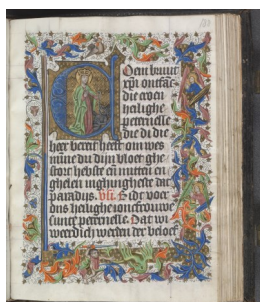 Oem bruut
xpi ontfac
die croen
heilighe
petrenelle
die di die
here bereit heeft om wes
minne du dijn bloet ghe
stort hebste en mitten en
ghelen inghinghste dat
paradijs. Bidt voer
ons heilighe ioncfrouwe
sinte petrenelle. Dat wi
weerdich werden der beloef